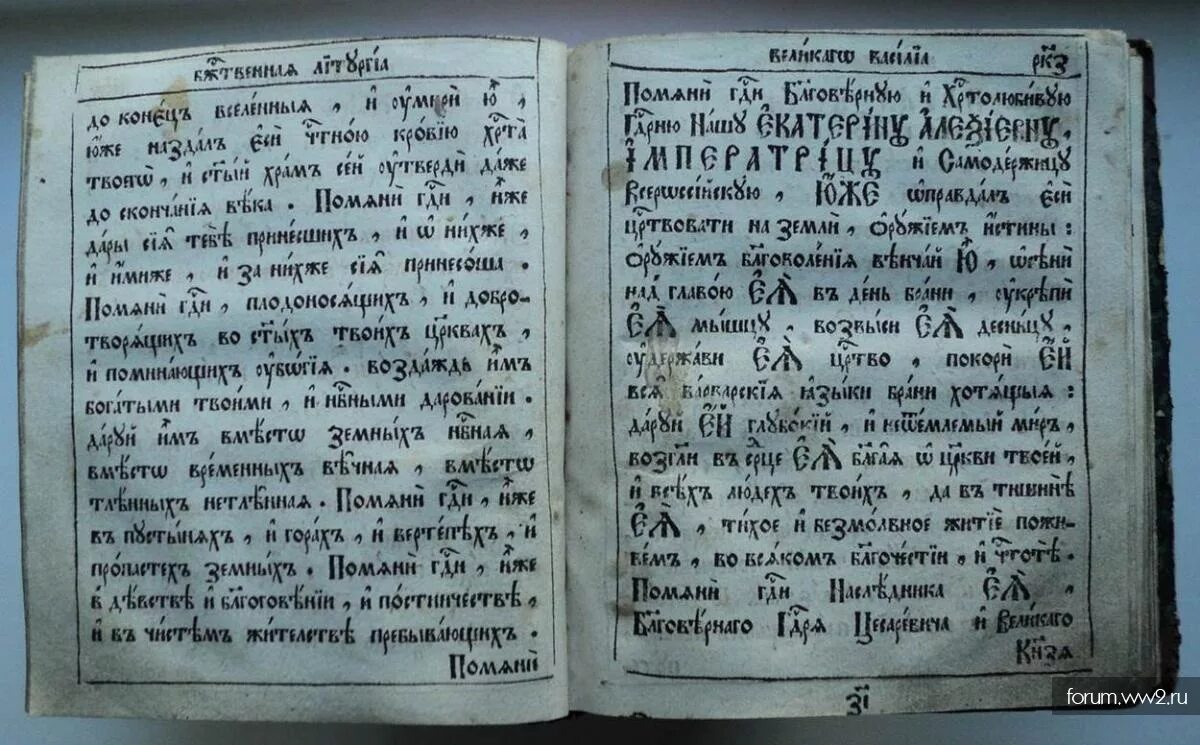 Бж҃твенная лїтꙋргі́а
до коне́цъ вселе́нныѧ, и҆ ᲂу҆мирѝ ю҆̀,
ю҆́же наздалъ є҆сѝ чт҃но́ю кро́вїю хрⷭ҇та̀
твоегѡ̀, и҆ ст҃ы́й хра́мъ се́й ᲂу҆твердѝ да́же
до скончанїѧ вѣ́ка. Помѧнѝ гдⷭ҇и, и҆̀же
да́ры сїѧ̑ тебѣ̀ прине́сшихъ, и҆ ѡ҆ ни́хже,
и҆ и҆́миже, и҆ за ни́хже сїѧ̑ принесо́ша.
Помѧнѝ гдⷭ҇и, плодоносѧ́щихъ, и҆ добро-
творѧ́щихъ во ст҃ы́хъ твои́хъ цр҃квахъ,
и҆ помина́ющихъ ᲂу҆бѡ́гїѧ. возда́ждь и҆̀мъ
бога́тыми твои́ми, и҆ нбⷭ҇ными дарова́нїи.
да́рꙋй и҆̀мъ вмѣ́стѡ земны́хъ нбⷭ҇наѧ,
вмѣ́стѡ вре́менныхъ вѣ́чнаѧ, вмѣ́стѡ
тлѣ́нныхъ нетлѣ́ннаѧ. Помѧнѝ гдⷭ҇и, и҆̀же
въ пꙋсты́нѧхъ, и҆ гора́хъ, и҆ верте́пѣхъ, и҆
про́пастехъ земны́хъ. Помѧнѝ гдⷭ҇и, и҆̀же
въ дѣ́вствѣ и҆ бл҃гоговѣ́нїи, и҆ по́стничествѣ,
и҆ въ чи́стѣмъ жи́тельствѣ пребыва́ющихъ.
Помѧнѝ
Вели́кагѡ васи́лїа
рк҃з
Помѧнѝ гдⷭ҇и Бл҃говѣ́рнꙋю и҆ Хрⷭ҇толюби́вꙋю
Гдⷭ҇рню На́шꙋ Є҆КАТЕРІ́НꙊ А҆ЛЕѮІ́ЕВНꙊ,
І҆МПЕРАТРІ́ЦꙊ и҆ Самоде́ржицꙋ
Всерѡссі́йскꙋю, Ю҆́ЖЕ ѡ҆правда́лъ є҆сѝ
црⷭ҇твовати на землѝ, ѻ҆рꙋ́жїемъ и҆́стины:
ѻ҆рꙋ́жїемъ бл҃говоле́нїѧ вѣнча́й Ю҆̀, ѡ҆сѣнѝ
над̾ главо́ю Є҆Ѧ̀ въ де́нь бра́ни, ᲂу҆крѣпѝ
Є҆Ѧ̀ мы́шцꙋ, возвы́си Є҆Ѧ̀ десни́цꙋ,
ᲂу҆держа́ви Є҆Ѧ̀ црⷭ҇тво, покорѝ Є҆́Й
всѧ̑ ва́рварскїѧ ꙗ҆зы́ки бра́ни хотѧ́щыѧ:
да́рꙋй Є҆́Й глꙋбо́кїй, и҆ неѿе́млемый ми́ръ,
возг҃ли въ срⷣце Є҆Ѧ̀ бл҃га́ѧ ѡ҆ цр҃кви твое́й,
и҆ всѣ́хъ лю́дехъ твои́хъ, да въ тишинѣ̀
Є҆Ѧ̀, ти́хое и҆ безмо́лвное житїѐ пожи-
ве́мъ, во всѧ́комъ бл҃гоче́стїи, и҆ чт҃отѣ̀.
Помѧнѝ гдⷭ҇и Наслѣ́дника Є҆Ѧ̀,
Бл҃говѣ́рнаго Гдⷭ҇рѧ Цесаре́вича и҆ Вели́каго
Кн҃зѧ
з҃і
forum.ww2.ru